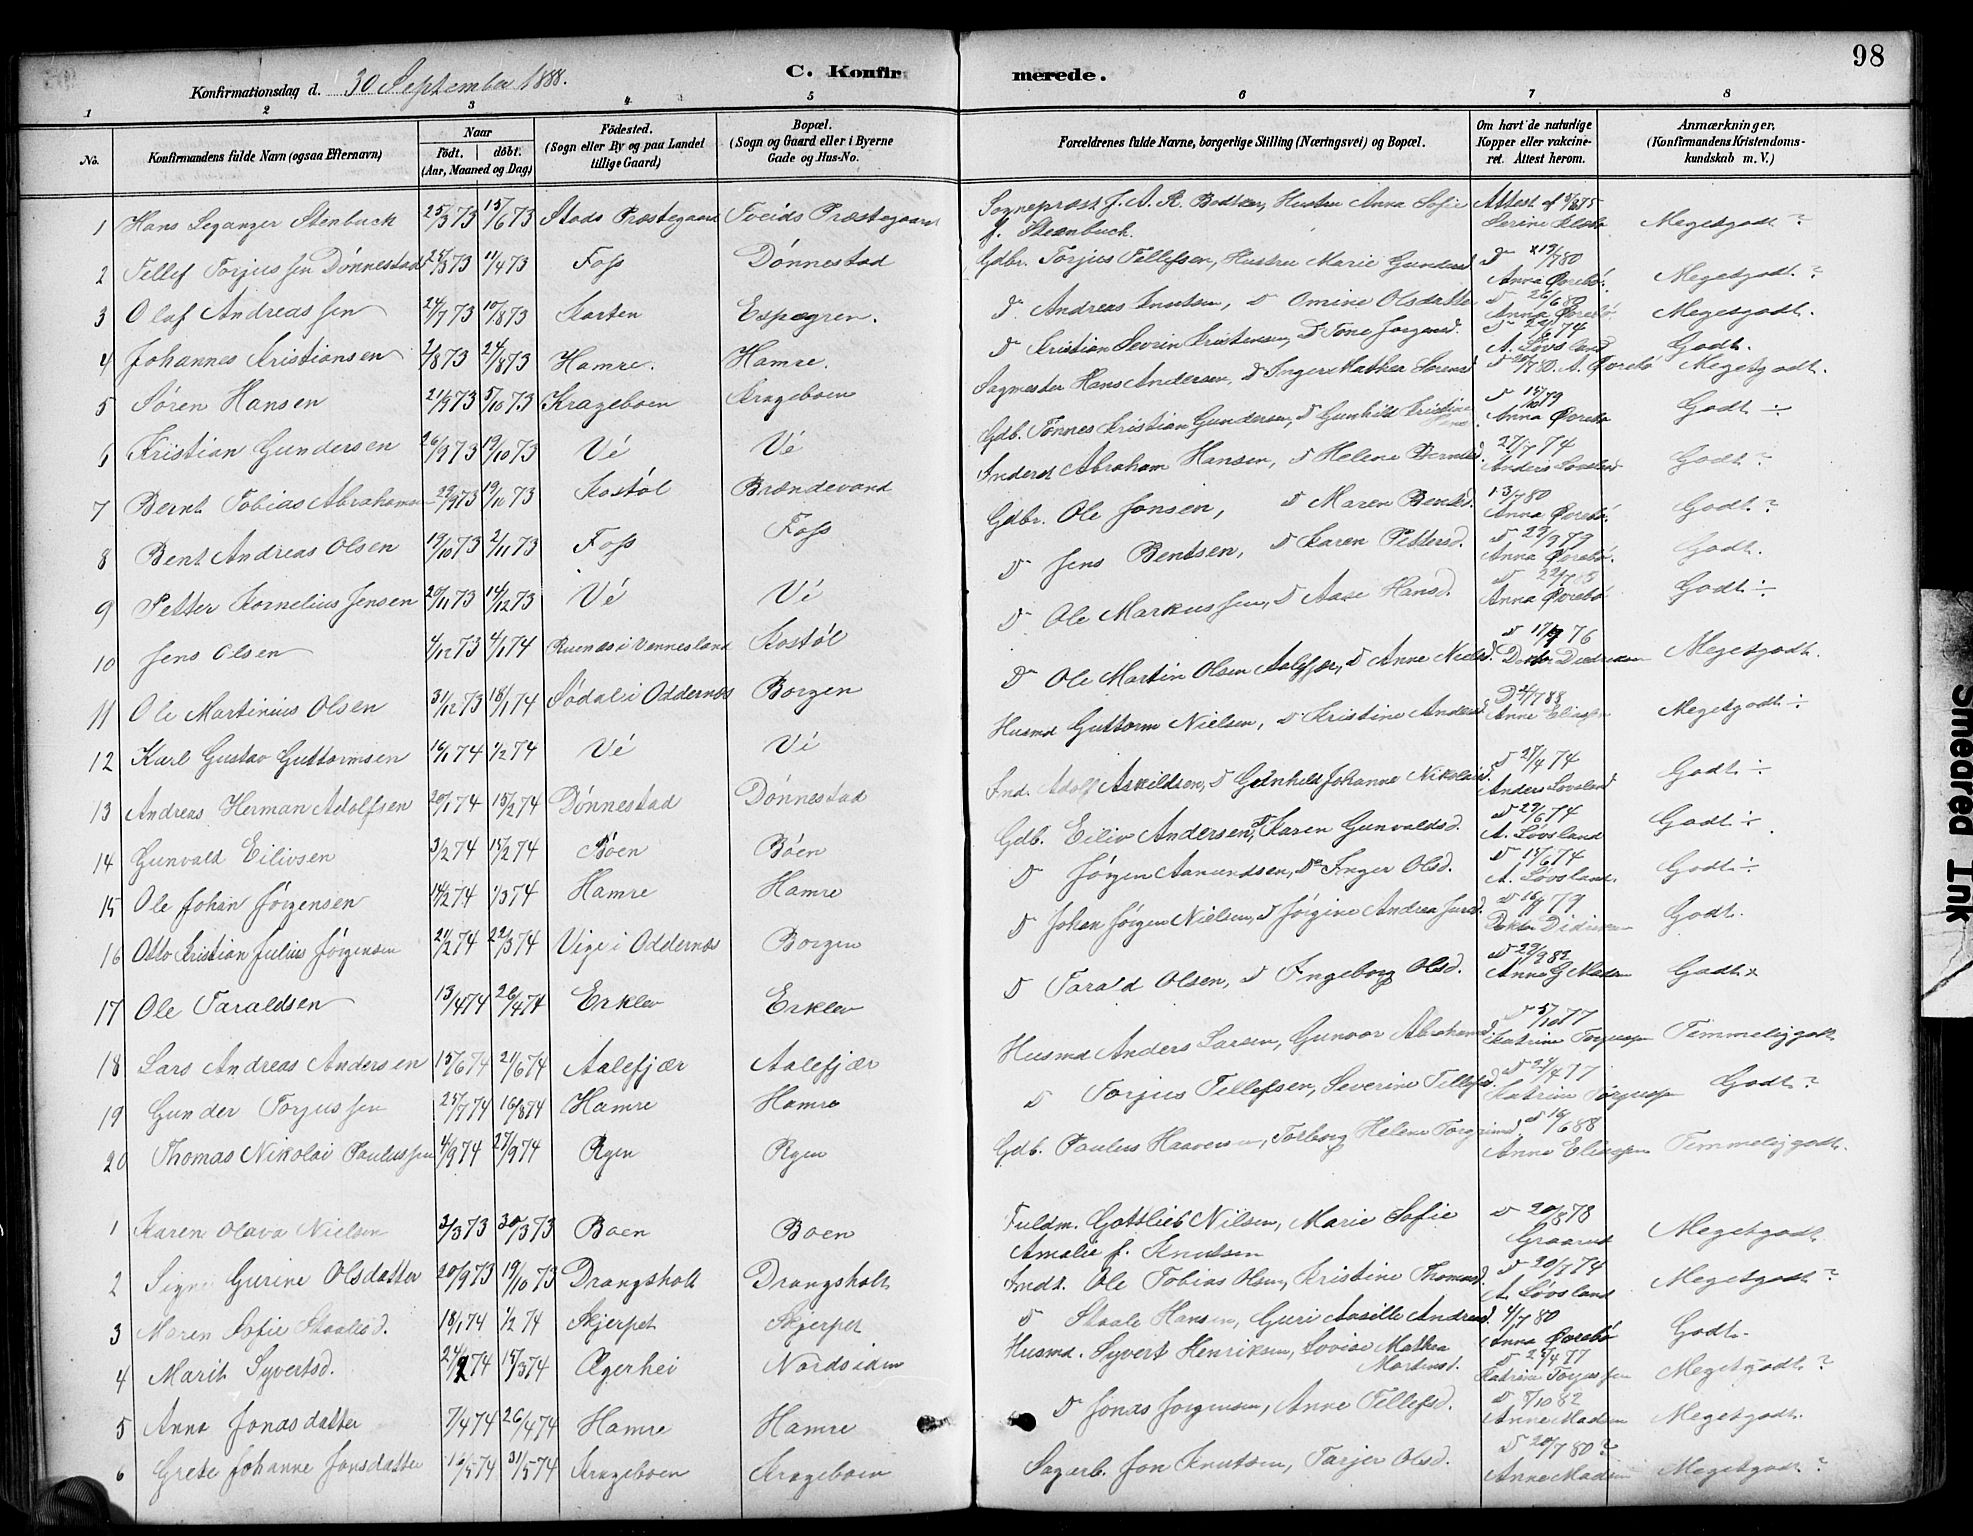 98
Konfirmationsdag d. 30 September 1888.
C. Konfirmerede.
1 2 3 4 5 6 7 8
No.
Konfirmandens fulde Navn (ogsaa Efternavn)
Naar
Födt. döbt.
(Aar, Maaned og Dag)
Födested.
(Sogn eller By og paa Landet
tillige Gaard)
Bopæl.
(Sogn og Gaard eller i Byerne
Gade og Hus-No.
Forældrenes fulde Navne, borgerlige Stilling (Næringsvei) og Bopæl.
Om havt de naturlige
Kopper eller vakcine-
ret. Attest herom.
Anmærkninger.
(Konfirmandens Kristendoms-
kundskab m. V.)
1 Hans Leganger Stenbuch 25/3 73 15/6 73 Stods Præstegaard Tveids Præstegaard Sognepræst J. A. R. Hustru Anna Sofie Attest Megetgodt ?
f. Steenbuch.
2 Tellef Torjussen Dønnestad 11/4 73 Foss Dønnestad Gdbr. Torjus Tellefsen, Hustru Marie Gundersd. D 19/7 80 Anna Øvrebø. Megetgodt. ?
3 Olaf Andreassen 24/7 73 10/8 73 Karten Espegren. D Andreas Knutsen, D Omine Olsdatter D 26/6 80 Anna Øvrebø. Megetgodt.
4 Johannes Kristiansen 24/8 73 Hamre. Hamre. D Kristian Sevrin Kristensen, D Tone Jorgensd. A. Løvsland Godt.
5 Søren Hansen 21/9 73 5/10 73 Krageboen Krageboen Sagmester Hans Andersen, D Inger Mathea Sørensd. D 20/7 80. A. Øvrebø Megetgodt.
6 Kristian Gundersen 26/9 73 19/10 73 Vé Vé Gdb. Tønnes Kristian Gundersen, D Gunhild Kristine Anna Øvrebø Godt ÷
7 Bernt Tobias Abrahamsen 29/9 73 19/10 73 Kostøl Brændevand Inderst Abraham Hansen, D Helene Berntsd. 27/7 74 Anders Løvsland Godt ?
8 Bent Andreas Olsen 19/10 73 2/11 73 Foss Foss Gdbr. Ole Jonsen, D Maren Bentsd. 13/7 80 Anna Øvrebø. Godt ?
9 Petter Kornelius Jensen 20/11 73 14/12 73 Vé Vé D Jens Bentsen, D Karen Pettersd. D 25/9 79 Anna Øvrebø. Godt.
10 Jens Olsen 4/12 73 4/1 74 i Vennesland Kostøl D Ole Markussen, D Aase Hansd. Anna Øvrebø Godt ÷
11 Ole Martinius Olsen 31/12 73 18/1 74 Sødal i Oddernes Borgen D Ole Martin Olsen Aalefjær, D Anne Nielsd. Megetgodt.
12 Karl Gustav Guttormsen 16/1 74 1/2 74 Vé Vé Husmd Guttorm Nielsen, D Kristine Andersd. D 2/7 88 Anne Eliassen Megetgodt ÷
13 Andreas Herman Adolfsen 20/1 74 15/2 74 Dønnestad Dønnestad Ind. Adolf Askildsen, D Gunhild Johanne Nikolaisd. D 27/4 74 Anders Løvsland Godt ÷
14 Gunvald Eilivsen 3/2 74 15/2 74 Bøen Bøen Gdb. Eiliv Andersen, D Karen Gunvaldsd. D 29/6 74 A. Løvsland Godt ÷
15 Ole Johan Jørgensen 14/2 74 1/3 74 Hamre Hamre D Jørgen Aanundsen, D Inger Olsd. D 15/6 74 A. Løvsland. Godt ÷
16 Otto Kristian Julius Jørgensen 21/2 74 22/3 74 Vige i Oddernes Borgen D Johan Jørgen Nielsen, D Jørgine Andrea Godt.
17 Ole Taraldsen 13/4 74 26/4 74 Erklev Erklev D Tarald Olsen, D Ingeborg Olsd. D 29/9 82 Anne G Madsen Godt
18 Lars Andreas Andersen 15/6 74 21/6 74 Aalefjær Aalefjær Husmd Anders Larsen, Gunvor Abrahamsd. D 5/10 77 Katrine Torjussen Temmeliggodt
19 Gunder Torjussen 25/7 74 16/8 74 Hamre Hamre D Torjus Tellefsen, Severine Tellefsd. D 24/4 77 Katrine Torjussen Godt ?
20 Thomas Nikolai Paulussen 4/9 74 27/9 74 Ryen Ryen Gdb. Paulus Haaversen, Torborg Helene Torgrimsd. D 16/6 88 Anne Eliassen Temmeliggodt.
1 Karen Olava Nielsen 2/3 73 30/3 73 Boen Boen Fuldm. Gottlieb Nilsen, Marie Sofie D 20/8 78 Graarud Megetgodt.
Amalie f. Knutsen
2 Signe Gurine Olsdatter 20/9 73 19/10 73 Drangsholt Drangsholt Indt. Ole Tobias Olsen, Kristine Thomasd. D 20/7 74 A. Løvsland Megetgodt ?
3 Maren Sofie Staalesd. 18/1 74 1/2 74 Skjerpet Skjerpet D Staale Hansen, Guri Andersd. 4/7 80 Anna Øvrebø Godt.
4 Marit Syvertsd. 24/2 74 15/3 74 Ægerhei Nordsiden Husmd. Syvert Henriksen, Lovise Mathea Martensd. Katrine Torjussen Megetgodt ?
5 Anna Jonasdatter 7/4 74 26/4 74 Hamre Hamre D Jonas Jorgensen, Anne Tellefsd. D 8/10 82 Anne Madsen Megetgodt.
6 Grete Johanne Jonsdatter 16/5 74 31/5 74 Krageboen Krageboen Sagarb. Jon Knutsen, Tarjer Olsd. D 20/7 80 ? Anne Madsen Megetgodt ?
Smeared Ink